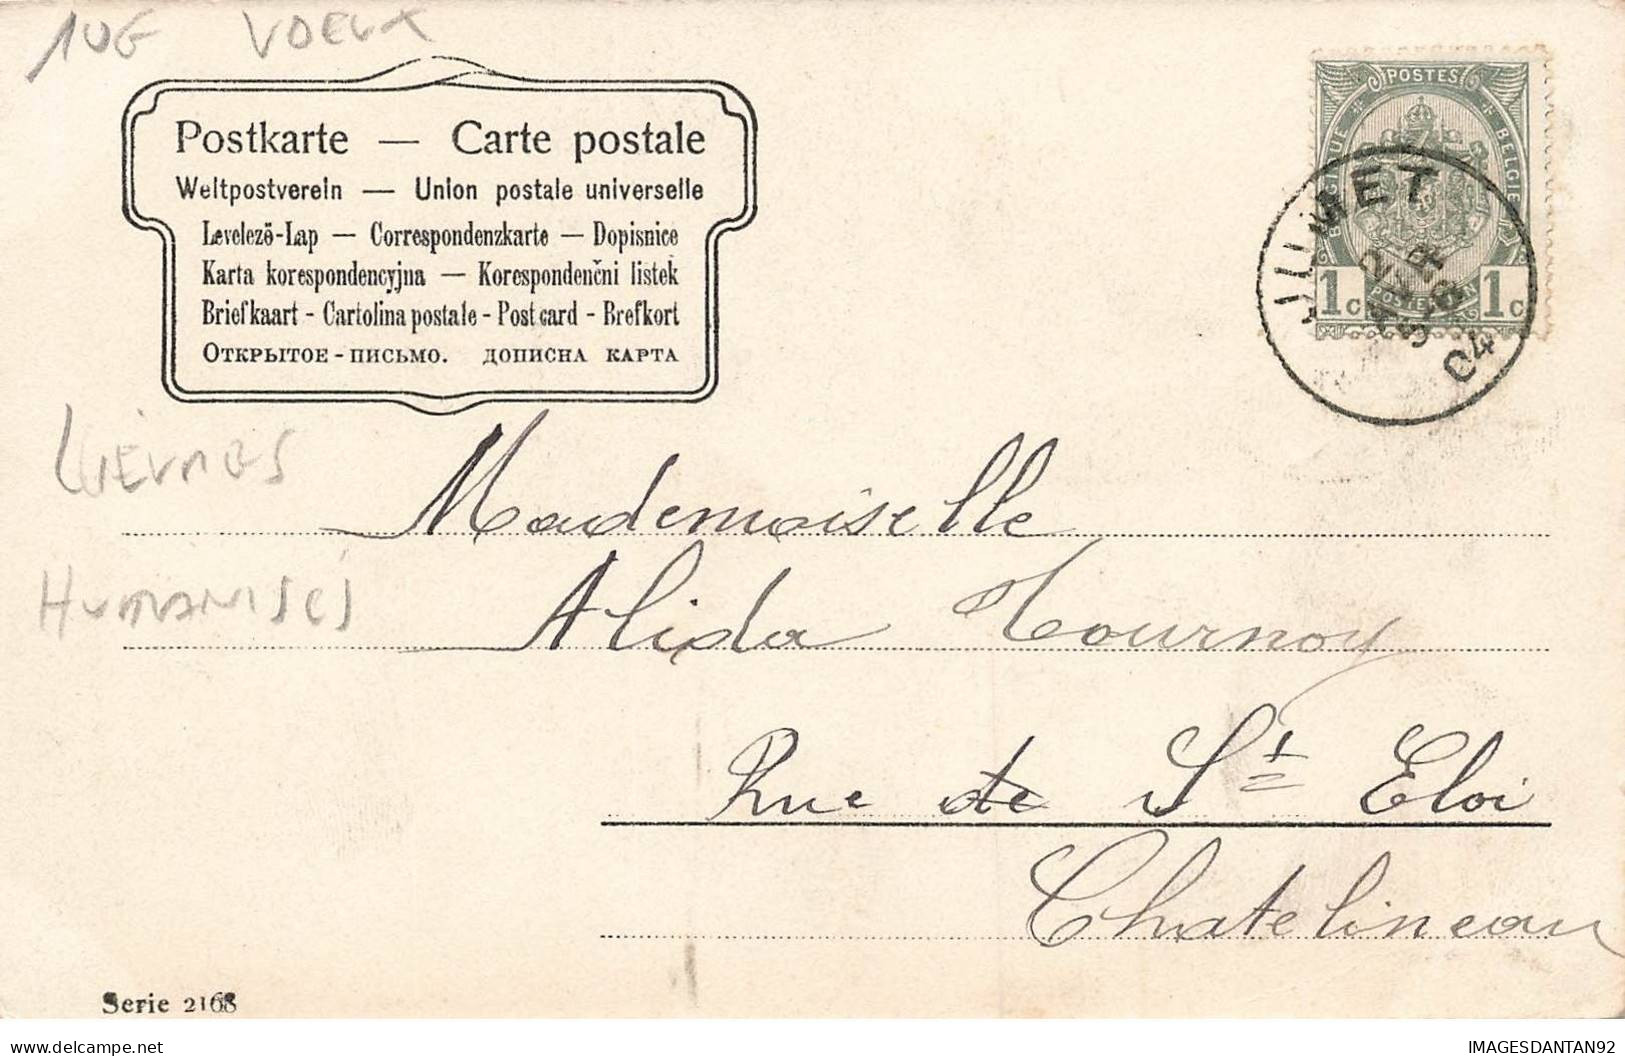 VOEUX
Postkarte — Carte postale
Weltpostverein — Union postale universelle
Levelező-Lap — Correspondenzkarte — Dopisnice
Karta korespondencyjna — Korespondenčni listek
Briefkaart - Cartolina postale - Post card - Brefkort
Открытое - письмо. дописна карта
POSTES
BELGIQUE BELGIE
1c POSTERIJEN 1c
JUMET
04
LIÈVRES
Mademoiselle
HUMANISÉS
Alida Tournoy
Rue de St Eloi
Chatelineau
Serie 2168
IMAGESDANTAN92
delcampe.net